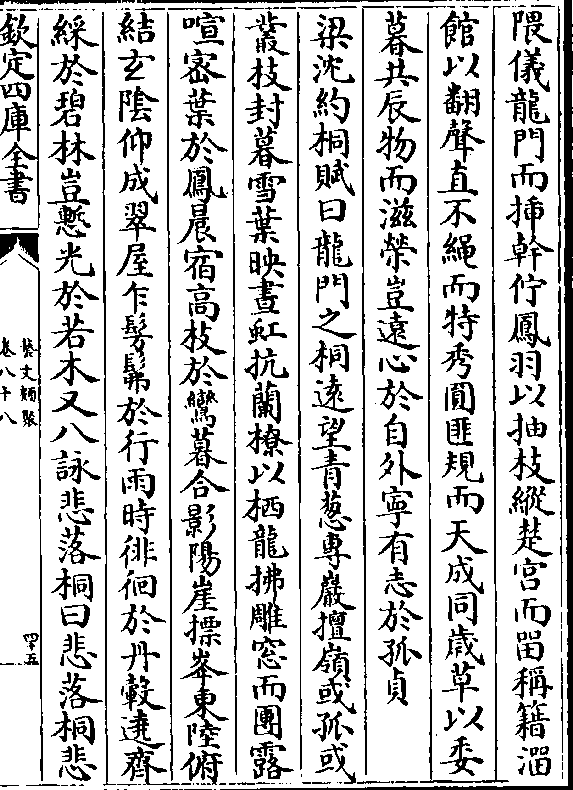 隈儀龍門而挿幹佇鳳羽以抽枝縱楚宫而留稱籍溜
館以翻聲直不繩而特秀圓匪規而天成同歳草以委
暮共辰物而滋榮豈遠心於自外寧有志於孤貞
梁沈約桐賦曰龍門之桐遠望青葱專巖擅嶺或孤或
叢枝封暮雪葉映晝虹抗蘭橑以栖龍拂雕窓而團露
喧密葉於鳳晨宿高枝於鸞暮合影陽崖摽峯東陸俯
結玄陰仰成翠屋乍髣髴於行雨時徘徊於丹轂遶齊
綵於碧林豈慙光於若木又八詠悲落桐曰悲落桐悲
欽定四庫全書
藝文類聚
卷八十八
四十五